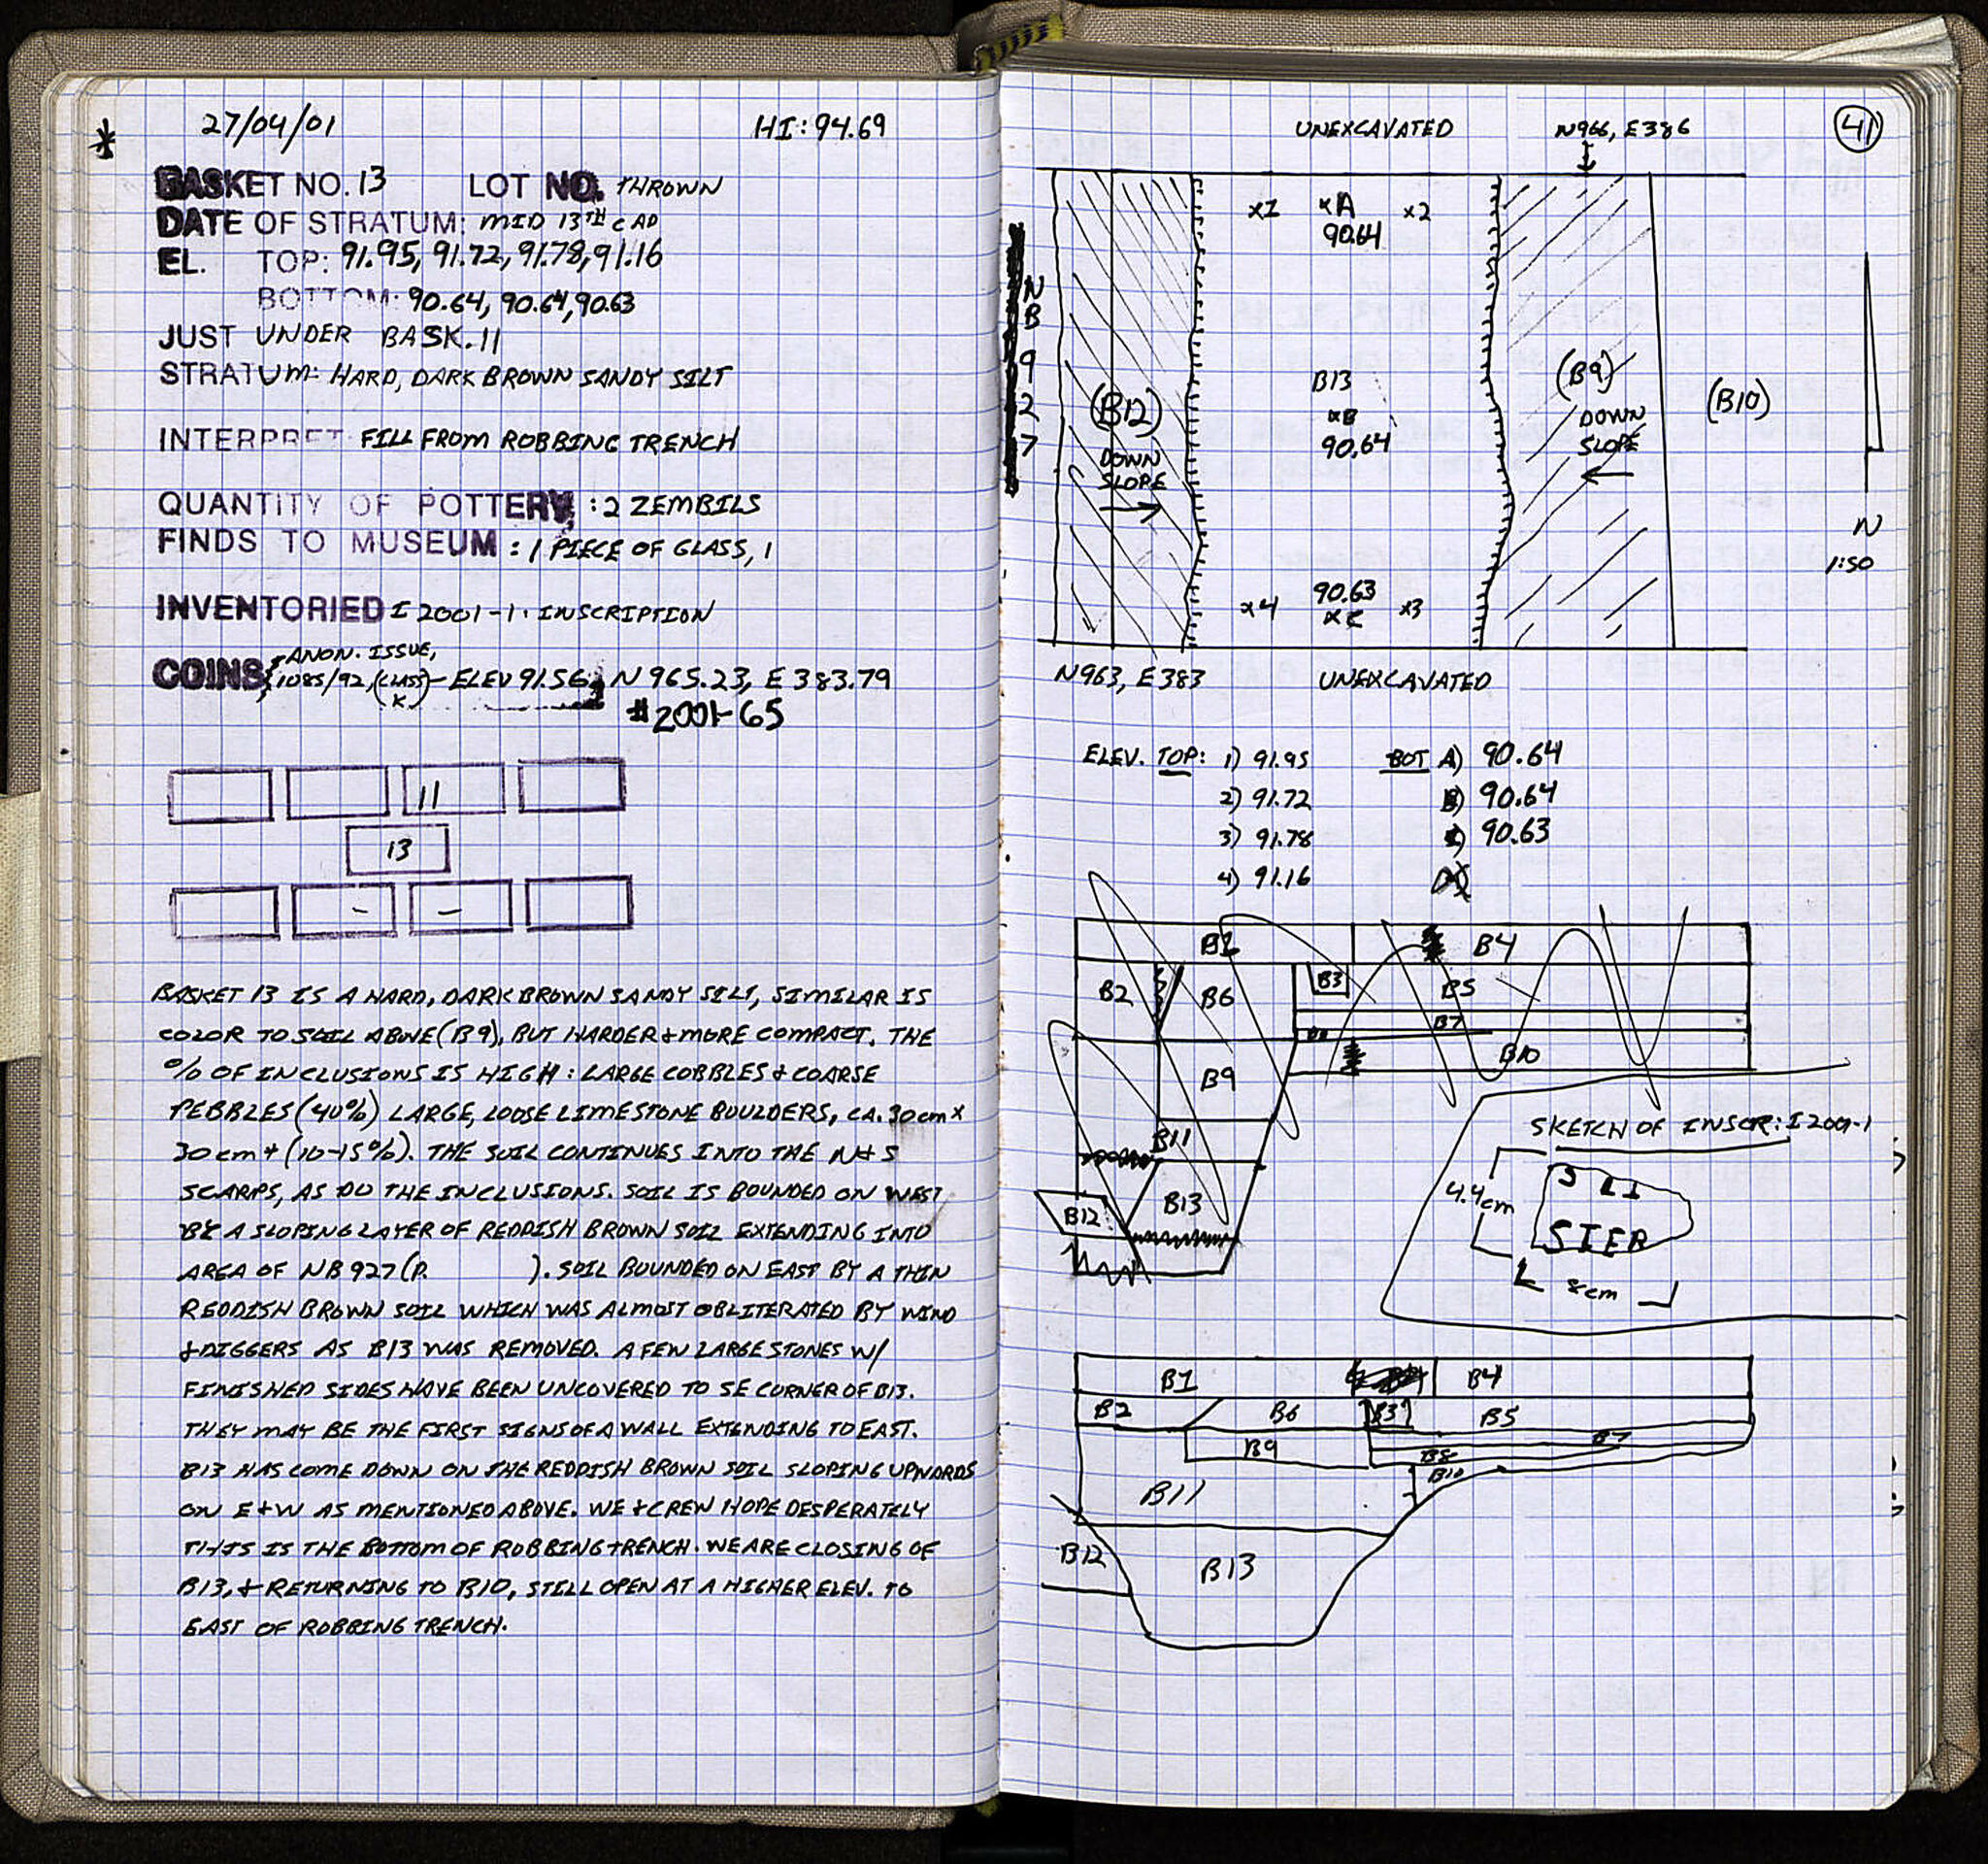 27/04/01 HI: 94.69
*
BASKET NO. 13 LOT NO. THROWN
DATE OF STRATUM: MID 13TH C AD
EL. TOP: 91.95, 91.72, 91.78, 91.16
BOTTOM: 90.64, 90.64, 90.63
JUST UNDER BASK. 11
STRATUM: HARD, DARK BROWN SANDY SILT
INTERPRET: FILL FROM ROBBING TRENCH
QUANTITY OF POTTERY: 2 ZEMBILS
FINDS TO MUSEUM: 1 PIECE OF GLASS, 1
INVENTORIED I 2001-1. INSCRIPTION
ANON. ISSUE,
COINS 1085/92, (CLASS K) - ELEV 91.56, N 965.23, E 383.79
#2001-65
11
13
- -
BASKET 13 IS A HARD, DARK BROWN SANDY SILT, SIMILAR IS
COLOR TO SOIL ABOVE (B9), BUT HARDER & MORE COMPACT. THE
% OF INCLUSIONS IS HIGH: LARGE COBBLES & COARSE
PEBBLES (40%) LARGE, LOOSE LIMESTONE BOULDERS, CA. 30cm X
30cm + (10-15%). THE SOIL CONTINUES INTO THE N & S
SCARPS, AS DO THE INCLUSIONS. SOIL IS BOUNDED ON WEST
BY A SLOPING LAYER OF REDDISH BROWN SOIL EXTENDING INTO
AREA OF NB 927 (P. ). SOIL BOUNDED ON EAST BY A THIN
REDDISH BROWN SOIL WHICH WAS ALMOST OBLITERATED BY WIND
& DIGGERS AS B13 WAS REMOVED. A FEW LARGE STONES W/
FINISHED SIDES HAVE BEEN UNCOVERED TO SE CORNER OF B13.
THEY MAY BE THE FIRST SIGNS OF A WALL EXTENDING TO EAST.
B13 HAS COME DOWN ON THE REDDISH BROWN SOIL SLOPING UPWARDS
ON E & W AS MENTIONED ABOVE. WE & CREW HOPE DESPERATELY
THIS IS THE BOTTOM OF ROBBING TRENCH. WE ARE CLOSING OF
B13, & RETURNING TO B10, STILL OPEN AT A HIGHER ELEV. TO
EAST OF ROBBING TRENCH.
41
UNEXCAVATED N966, E386
x1 xA x2
90.64
NB 927
(B12)
DOWN
SLOPE
B13
xB
90.64
(B9)
DOWN
SLOPE
(B10)
N
1:50
90.63
x4 xC x3
N963, E383 UNEXCAVATED
ELEV. TOP: 1) 91.95 BOT A) 90.64
2) 91.72 B) 90.64
3) 91.78 C) 90.63
4) 91.16
B1 B4
B2 B6 B3 B5
B7
B8
B9 B10
B11
B12 B13
SKETCH OF INSCR: I 2001-1
4.4cm
SIER
8cm
B1 B4
B2 B6 B3 B5
B9 B8 B7
B10
B11
B12 B13